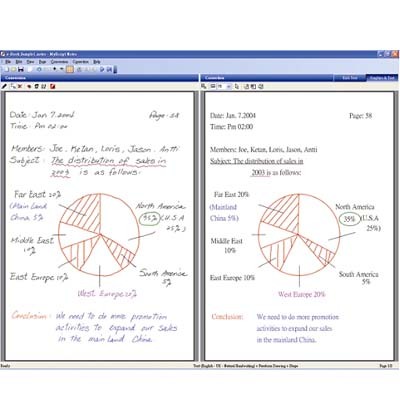 Conversion
Conversion
Date: Jan 7.2004 Page: 58
Time: Pm 02:00
Members: Joe, Ketan, Loris, Jason, Antti
Subject: The distribution of sales in
2003 is as follows:
Far East 20%
(Main Land
China 5%
North America
35% (U.S.A
25%)
Middle East
10%
East Europe 10%
South America
5%
West Europe 20%
Conclusion: We need to do more promotion
activities to expand our sales
in the main land China.
Date: Jan. 7.2004 Page: 58
Time: Pm 02:00
Members: Joe, Ketan, Loris, Jason, Antti
Subject: The distribution of sales in
2003 is as follows:
Far East 20%
(Mainland
China 5%)
North America
35% (U.S.A
25%)
Middle East
10%
East Europe 10%
South America
5%
West Europe 20%
Conclusion: We need to do more promotion
activities to expand our sales
in the mainland China.
Ready